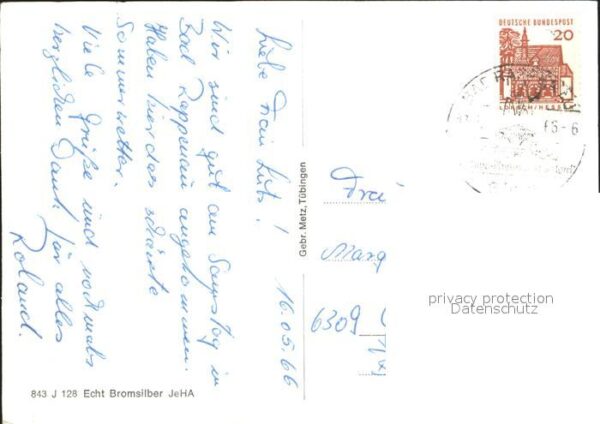 16.05.66
Liebe Frau Lutz!
Wir sind gut am Samstag in
Bad Rappenau angekommen.
Haben hier das schönste
Sommerwetter.
Viele Grüße und nochmals
herzlichen Dank für alles
Roland.
Gebr. Metz, Tübingen
843 J 128 Echt Bromsilber JeHA
DEUTSCHE BUNDESPOST
20
LORSCH/HESSEN
BAD RAPPENAU
Frau
Marg
6309
privacy protection
Datenschutz